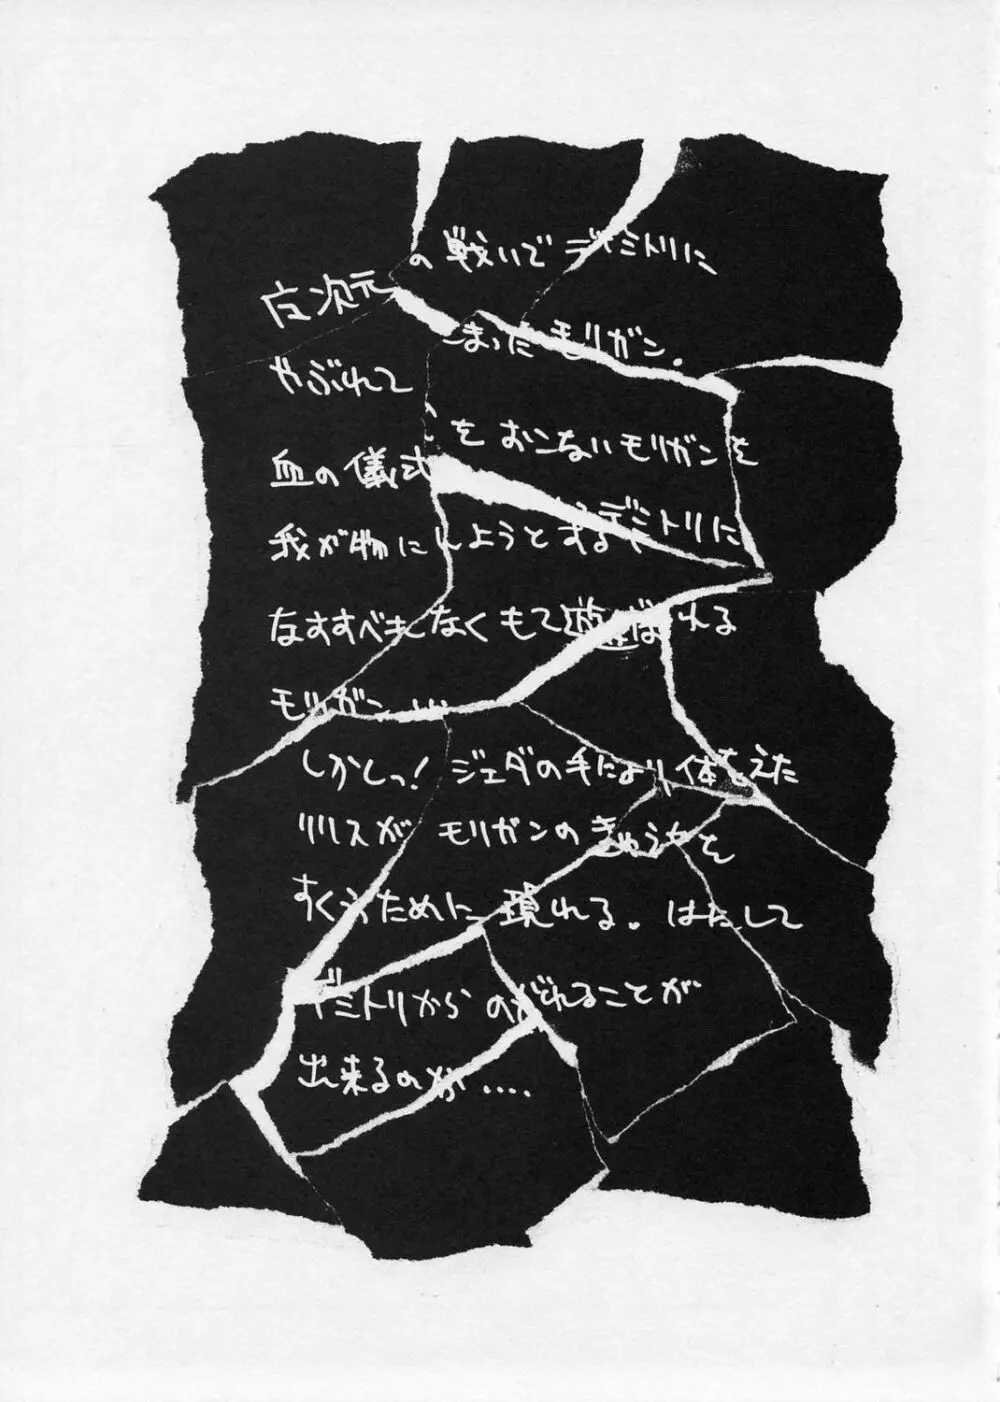 次元の戦いでデミトリに
やぶれてしまったモリガン。
血の儀式をおこないモリガンを
我が物にしようとするデミトリに
なすすべもなくもて遊ばれる
モリガン・・・
しかしっ!ジェダの手により体をえた
リリスがモリガンのきゅうちを
すくうために現れる。はたして
デミトリからのがれることが
出来るのか・・・・